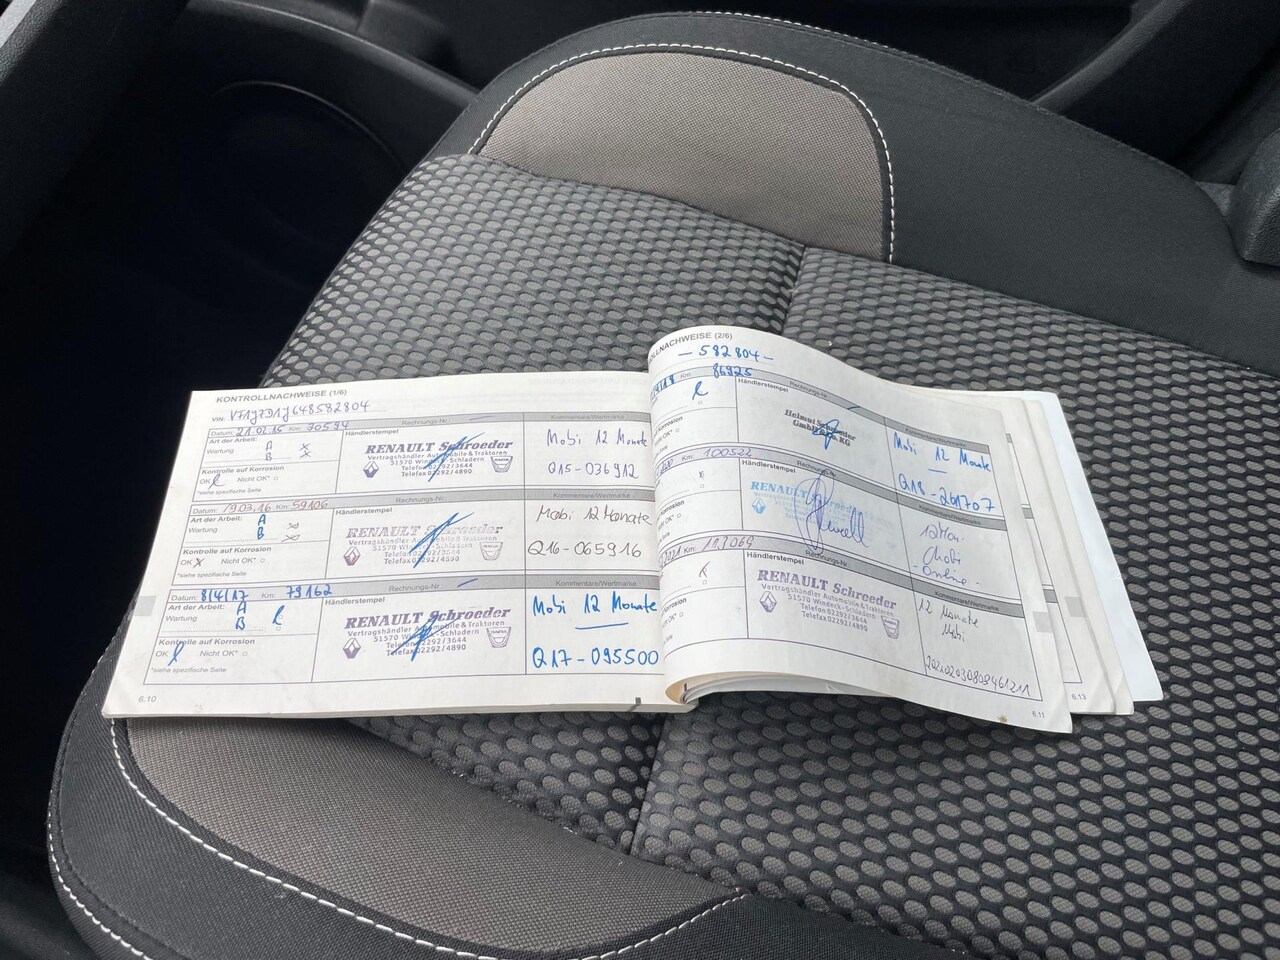 KONTROLLNACHWEISE (1/6)
VIN: VF1J7D1J648582804
Datum: 21.02.15 Km: 30594
Rechnungs-Nr.:
Kommentare/Wertmarke
Art der Arbeit: A
Wartung B
Händlerstempel
RENAULT Schroeder
Vertragshändler Automobile & Traktoren
51570 Windeck-Schladern
Telefon 02292/3644
Telefax 02292/4890
Mobi 12 Monate
Q15-036912
Kontrolle auf Korrosion
OK Nicht OK*
*siehe spezifische Seite
Datum: 19.03.16 Km: 59106
Rechnungs-Nr.:
Kommentare/Wertmarke
Art der Arbeit: A
Wartung B
Händlerstempel
RENAULT Schroeder
Vertragshändler Automobile & Traktoren
51570 Windeck-Schladern
Telefon 02292/3644
Telefax 02292/4890
Mobi 12 Monate
Q16-065916
Kontrolle auf Korrosion
OK Nicht OK*
*siehe spezifische Seite
Datum: 8/4/17 Km: 79162
Rechnungs-Nr.:
Kommentare/Wertmarke
Art der Arbeit: A
Wartung B
Händlerstempel
RENAULT Schroeder
Vertragshändler Automobile & Traktoren
51570 Windeck-Schladern
Telefon 02292/3644
Telefax 02292/4890
Mobi 12 Monate
Q17-095500
Kontrolle auf Korrosion
OK Nicht OK*
*siehe spezifische Seite
6.10
OLLNACHWEISE (2/6)
- 582804 -
Km: 86925
Rechnungs-Nr.:
Kommentare/Wertmarke
Händlerstempel
Helmut Schroeder
GmbH & Co. KG
Mobi 12 Monate
Q18-261707
Korrosion
OK*
Km: 100522
Rechnungs-Nr.:
Kommentare/Wertmarke
Händlerstempel
RENAULT
12 Mon.
Mobi
-Online-
Korrosion
OK*
Km:
Händlerstempel
Kommentare/Wertmarke
RENAULT Schroeder
Vertragshändler Automobile & Traktoren
51570 Windeck-Schladern
Telefon 02292/3644
Telefax 02292/4890
12 Monate
Mobi
Korrosion
OK*
6.11
6.13